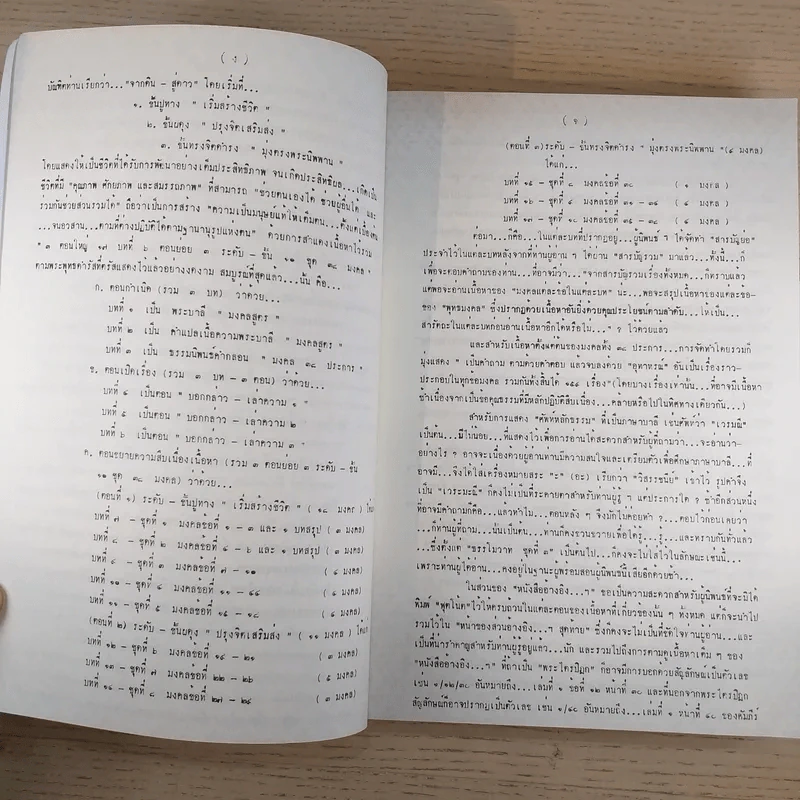 ( ง )
บัณฑิตท่านเรียกว่า..."จากดิน - สู่ดาว" โดยเริ่มที่...
๑. ขั้นปูทาง " เริ่มสร้างชีวิต "
๒. ขั้นผดุง " ปรุงจิตเสริมส่ง "
๓. ขั้นทรงจิตดำรง " มุ่งตรงพระนิพพาน "
โดยแสดงให้เป็นชีวิตที่ได้รับการพัฒนาอย่างเต็มประสิทธิภาพ จนเกิดประสิทธิผล...(เกิดเป็น
ชีวิตที่มี "คุณภาพ ศักยภาพ และสมรรถภาพ" ที่สามารถ "ช่วยตนเองได้ ช่วยผู้อื่นได้ และ
ร่วมกันช่วยส่วนรวมได้" ถือว่าเป็นการสร้าง "ความเป็นมนุษย์แท้ให้เต็มคน...ตั้งแต่เบื้องต้น
...จนอวสาน...ตามที่ต่างปฏิบัติได้ตามฐานานุรูปแห่งตน" ด้วยการสำแดงเนื้อหาไว้รวม
"๓ ตอนใหญ่ ๑๗ บทที่ ๖ ตอนย่อย ๓ ระดับ - ขั้น ๑๐ ชุด ๓๘ มงคล "
ตามพระพุทธดำรัสที่ตรัสแสดงไว้แล้วอย่างงดงาม สมบูรณ์ที่สุดแล้ว...นั้น คือ...
ก. ตอนกำเนิด (รวม ๓ บท) ว่าด้วย...
บทที่ ๑ เป็น พระบาลี " มงคลสูตร "
บทที่ ๒ เป็น คำแปลเนื้อความพระบาลี " มงคลสูตร "
บทที่ ๓ เป็น ธรรมนิพนธ์คำกลอน " มงคล ๓๘ ประการ "
ข. ตอนเปิดเรื่อง (รวม ๓ บท - ๓ ตอน) ว่าด้วย...
บทที่ ๔ เป็นตอน " บอกกล่าว - เล่าความ ๑ "
บทที่ ๕ เป็นตอน " บอกกล่าว - เล่าความ ๒
บทที่ ๖ เป็นตอน " บอกกล่าว - เล่าความ ๓ "
ค. ตอนขยายความสืบเนื่องเนื้อหา (รวม ๓ ตอนย่อย ๓ ระดับ - ขั้น
๑๐ ชุด ๓๘ มงคล) ว่าด้วย...
(ตอนที่ ๑) ระดับ - ขั้นปูทาง " เริ่มสร้างชีวิต " ( ๑๘ มงคล )
บทที่ ๗ - ชุดที่ ๑ มงคลข้อที่ ๑ - ๓ และ ๑ บทสรุป ( ๓ มงคล )
บทที่ ๘ - ชุดที่ ๒ มงคลข้อที่ ๔ - ๖ และ ๑ บทสรุป ( ๓ มงคล )
บทที่ ๙ - ชุดที่ ๓ มงคลข้อที่ ๗ - ๑๐ ( ๔ มงคล )
บทที่ ๑๐ - ชุดที่ ๔ มงคลข้อที่ ๑๑ - ๑๔ ( ๔ มงคล )
บทที่ ๑๑ - ชุดที่ ๕ มงคลข้อที่ ๑๕ - ๑๘ ( ๔ มงคล )
(ตอนที่ ๒) ระดับ - ขั้นผดุง " ปรุงจิตเสริมส่ง " ( ๑๑ มงคล ) ได้แก่
บทที่ ๑๒ - ชุดที่ ๖ มงคลข้อที่ ๑๙ - ๒๑ ( ๓ มงคล )
บทที่ ๑๓ - ชุดที่ ๗ มงคลข้อที่ ๒๒ - ๒๖ ( ๕ มงคล )
บทที่ ๑๔ - ชุดที่ ๘ มงคลข้อที่ ๒๗ - ๒๙ ( ๓ มงคล )
(ตอนที่ ๓) ระดับ - ขั้นทรงจิตดำรง " มุ่งตรงพระนิพพาน "(๙ มงคล)
ได้แก่...
บทที่ ๑๕ - ชุดที่ ๘ มงคลข้อที่ ๓๐ ( ๑ มงคล )
บทที่ ๑๖ - ชุดที่ ๙ มงคลข้อที่ ๓๑ - ๓๔ ( ๔ มงคล )
บทที่ ๑๗ - ชุดที่ ๑๐ มงคลข้อที่ ๓๕ - ๓๘ ( ๔ มงคล )
ต่อมา...ก็คือ...ในแต่ละบทที่ปรากฏอยู่...ผู้นิพนธ์ ฯ ได้จัดทำ "สารบัญย่อ"
ประจำไว้ในแต่ละบทหลังจากที่ท่านผู้อ่าน ฯ ได้อ่าน "สารบัญรวม" มาแล้ว...ทั้งนี้...ก็
เพื่อจะตอบคำถามของท่าน...ที่อาจมีว่า..."จากสารบัญรวมเรื่องทั้งหมด...ก็ทราบแล้ว
แต่พอจะอ่านเนื้อหาของ "มงคลแต่ละข้อในแต่ละบท" น่ะ...พอจะสรุปเนื้อหาของแต่ละข้อ-
ของ "พุทธมงคล" ซึ่งปรากฏด้วยเนื้อหาอันยิ่งด้วยคุณประโยชน์ตามลำดับ...ให้เป็น...
สารัตถะในแต่ละบทก่อนอ่านเนื้อหาอีกได้หรือไม่..." ? ไว้ด้วยแล้ว
และสำหรับเนื้อหาตั้งแต่ต้นของมงคลทั้ง ๓๘ ประการ...การจัดทำโดยรวมก็
มุ่งแสดง " เป็นคำถาม ตามด้วยคำตอบ แล้วจบลงด้วย "อุทาหรณ์" อันเป็นเรื่องราว-
ประกอบในทุกข้อมงคล รวมกันทั้งสิ้นได้ ๑๕๕ เรื่อง"(โดยบางเรื่องเท่านั้น...ที่อาจมีเนื้อหา
ซ้ำเนื่องจากเป็นข้อคุณธรรมที่มีหลักปฏิบัติสืบเนื่อง...คล้ายหรือไปในทิศทางเดียวกัน...)
สำหรับการแสดง "ศัพท์หลักธรรม" ที่เป็นภาษาบาลี เช่นศัพท์ว่า "เวรมณี"
เป็นต้น...มีไม่น้อย...ที่แสดงไว้เพื่อการอ่านได้สะดวกสำหรับผู้ที่ถามว่า...จะอ่านว่า-
อย่างไร ? อาจจะเนื่องด้วยผู้อ่านท่านมีความสนใจและเตรียมตัวเพื่อศึกษาภาษาบาลี...ที่
อาจมี...จึงได้ใส่เครื่องหมายสระ "ะ" (อะ) เรียกว่า "วิสรรชนีย์" เข้าไว้ รูปคำจึง
เป็น "เวระมะณี" ก็คงไม่เป็นที่ระคายตาสำหรับท่านผู้รู้ ฯ แต่ประการใด ? ซ้ำอีกส่วนหนึ่ง
ที่อาจมีคำถามก็คือ...แล้วทำไม...ตอนหลัง ๆ จึงมักไม่ค่อยทำ ?...ตอบไว้ก่อนเลยว่า
...ก็ท่านผู้ที่ถาม...นั่นเป็นต้น...ท่านก็คงขวนขวายเพื่อได้รู้...รู้...และทราบกันทั่วแล้ว
...ซึ่งตั้งแต่ "ธรรโมวาท ชุดที่ ๓" เป็นต้นไป...ก็คงจะไม่ใส่ไว้ในลักษณะเช่นนี้...
เพราะท่านผู้ได้อ่าน...คงอยู่ในฐานะผู้พร้อมสอนผู้นิพนธ์นี้เสียอีกด้วยซ้ำ...
ในส่วนของ "หนังสืออ้างอิง...ฯ" ขอเป็นความสะดวกสำหรับผู้นิพนธ์ที่จะมิได้
พิมพ์ "ฟุตโน้ต"ไว้ให้ครบถ้วนในแต่ละตอนของเนื้อหาที่เกี่ยวข้องนั้น ๆ ทั้งหมด แต่ก็จะนำไป
รวมไว้ใน "หน้าของส่วนอ้างอิง...ฯ สุดท้าย" ซึ่งก็คงจะไม่เป็นที่ขัดใจท่านผู้อ่าน...และ
เป็นที่น่ารำคาญสำหรับท่านผู้รู้อยู่แล้ว...นัก และรวมไปถึงการตามดูเนื้อหาเต็ม ๆ ของ
"หนังสืออ้างอิง...ฯ" ที่ถ้าเป็น "พระไตรปิฎก" ก็อาจมีการบอกด้วยสัญลักษณ์เป็นตัวเลข
เช่น ๑/๑๒/๓๘ อันหมายถึง...เล่มที่ ๑ ข้อที่ ๑๒ หน้าที่ ๓๘ และที่นอกจากพระไตรปิฎก
สัญลักษณ์ก็อาจปรากฏเป็นตัวเลข เช่น ๑/๙๘ อันหมายถึง...เล่มที่ ๑ หน้าที่ ๙๘ ของคัมภีร์